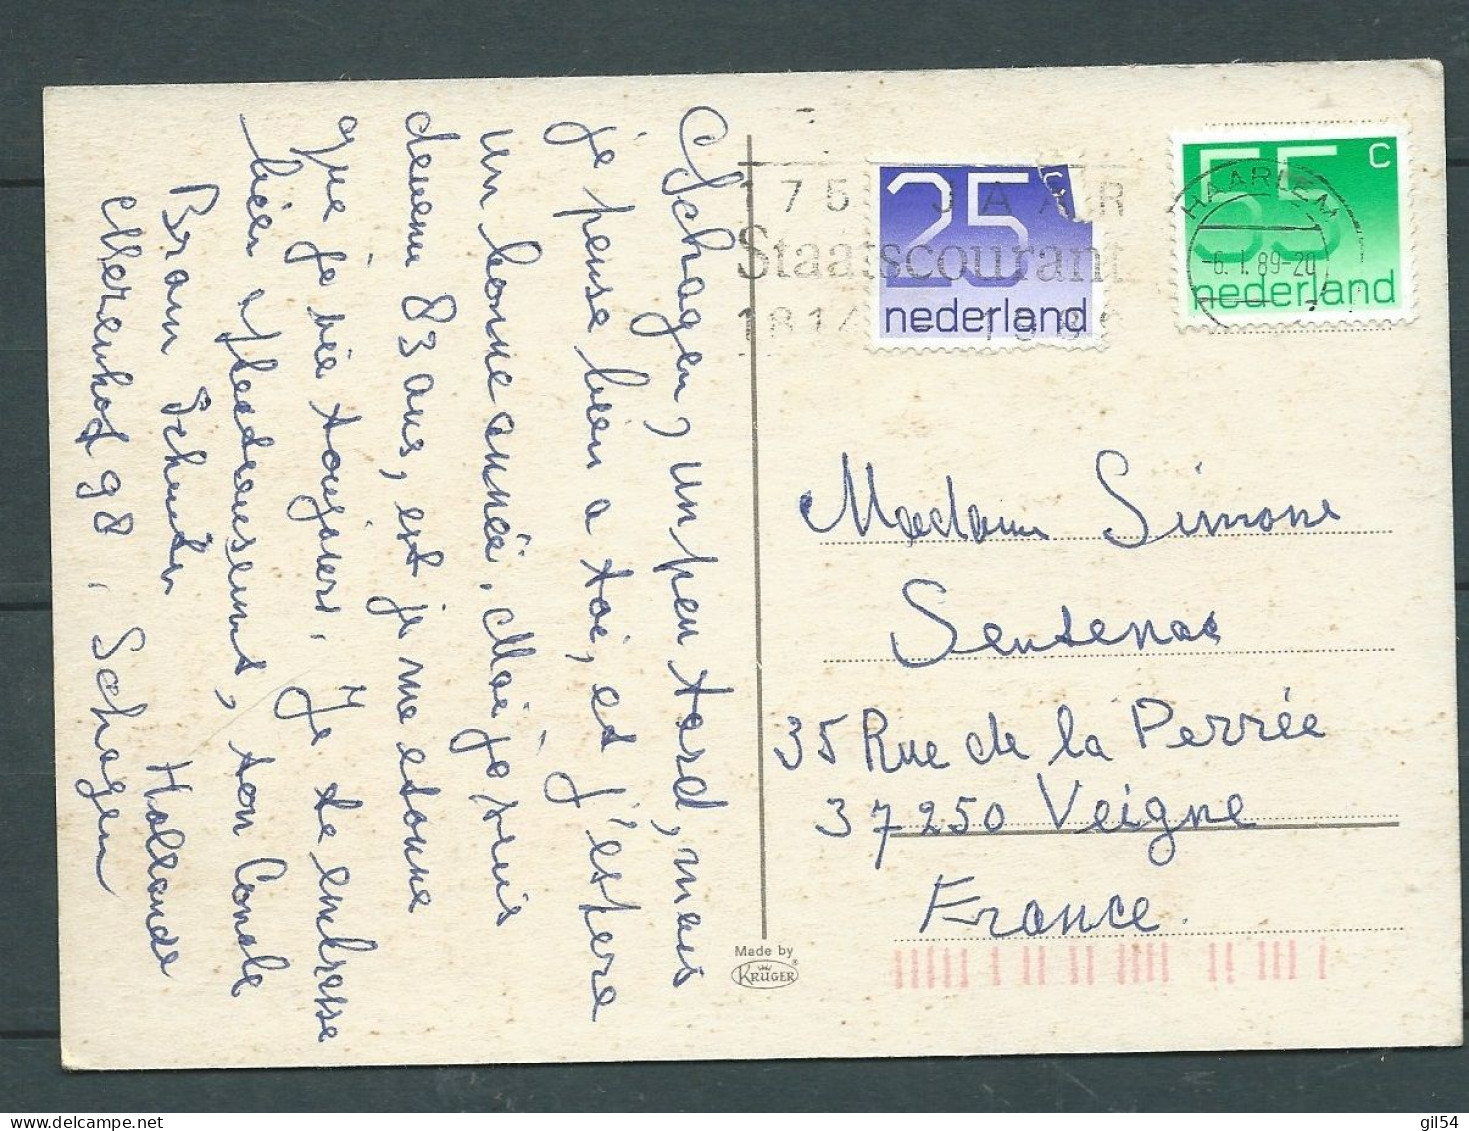 Schagen, un peu tard, mais
je pense bien a toi, et j'espere
un bonne année, Moi je suis
devenu 83 ans, est je me etonne
que je vie toujours. Je te embrasse
bien affectueusement, ton Canale
Bram Schuiten Holland
Merenhof 98, Schagen
175 JAAR
Staatscourant
1814 - 1989
25 c
nederland
55 c
nederland
HAARLEM
-6.1.89-20
Madame Simone
Sentenac
35 Rue de la Perrée
37250 Veigne
France.
Made by
KRÜGER
gil54